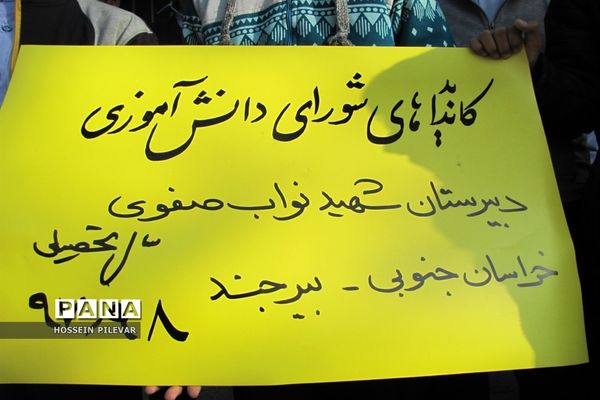 کاندیداهای شورای دانش آموزی
دبیرستان شهید نواب صفوی
خراسان جنوبی - بیرجند
سال تحصیلی
PANA
HOSSEIN PILEVAR